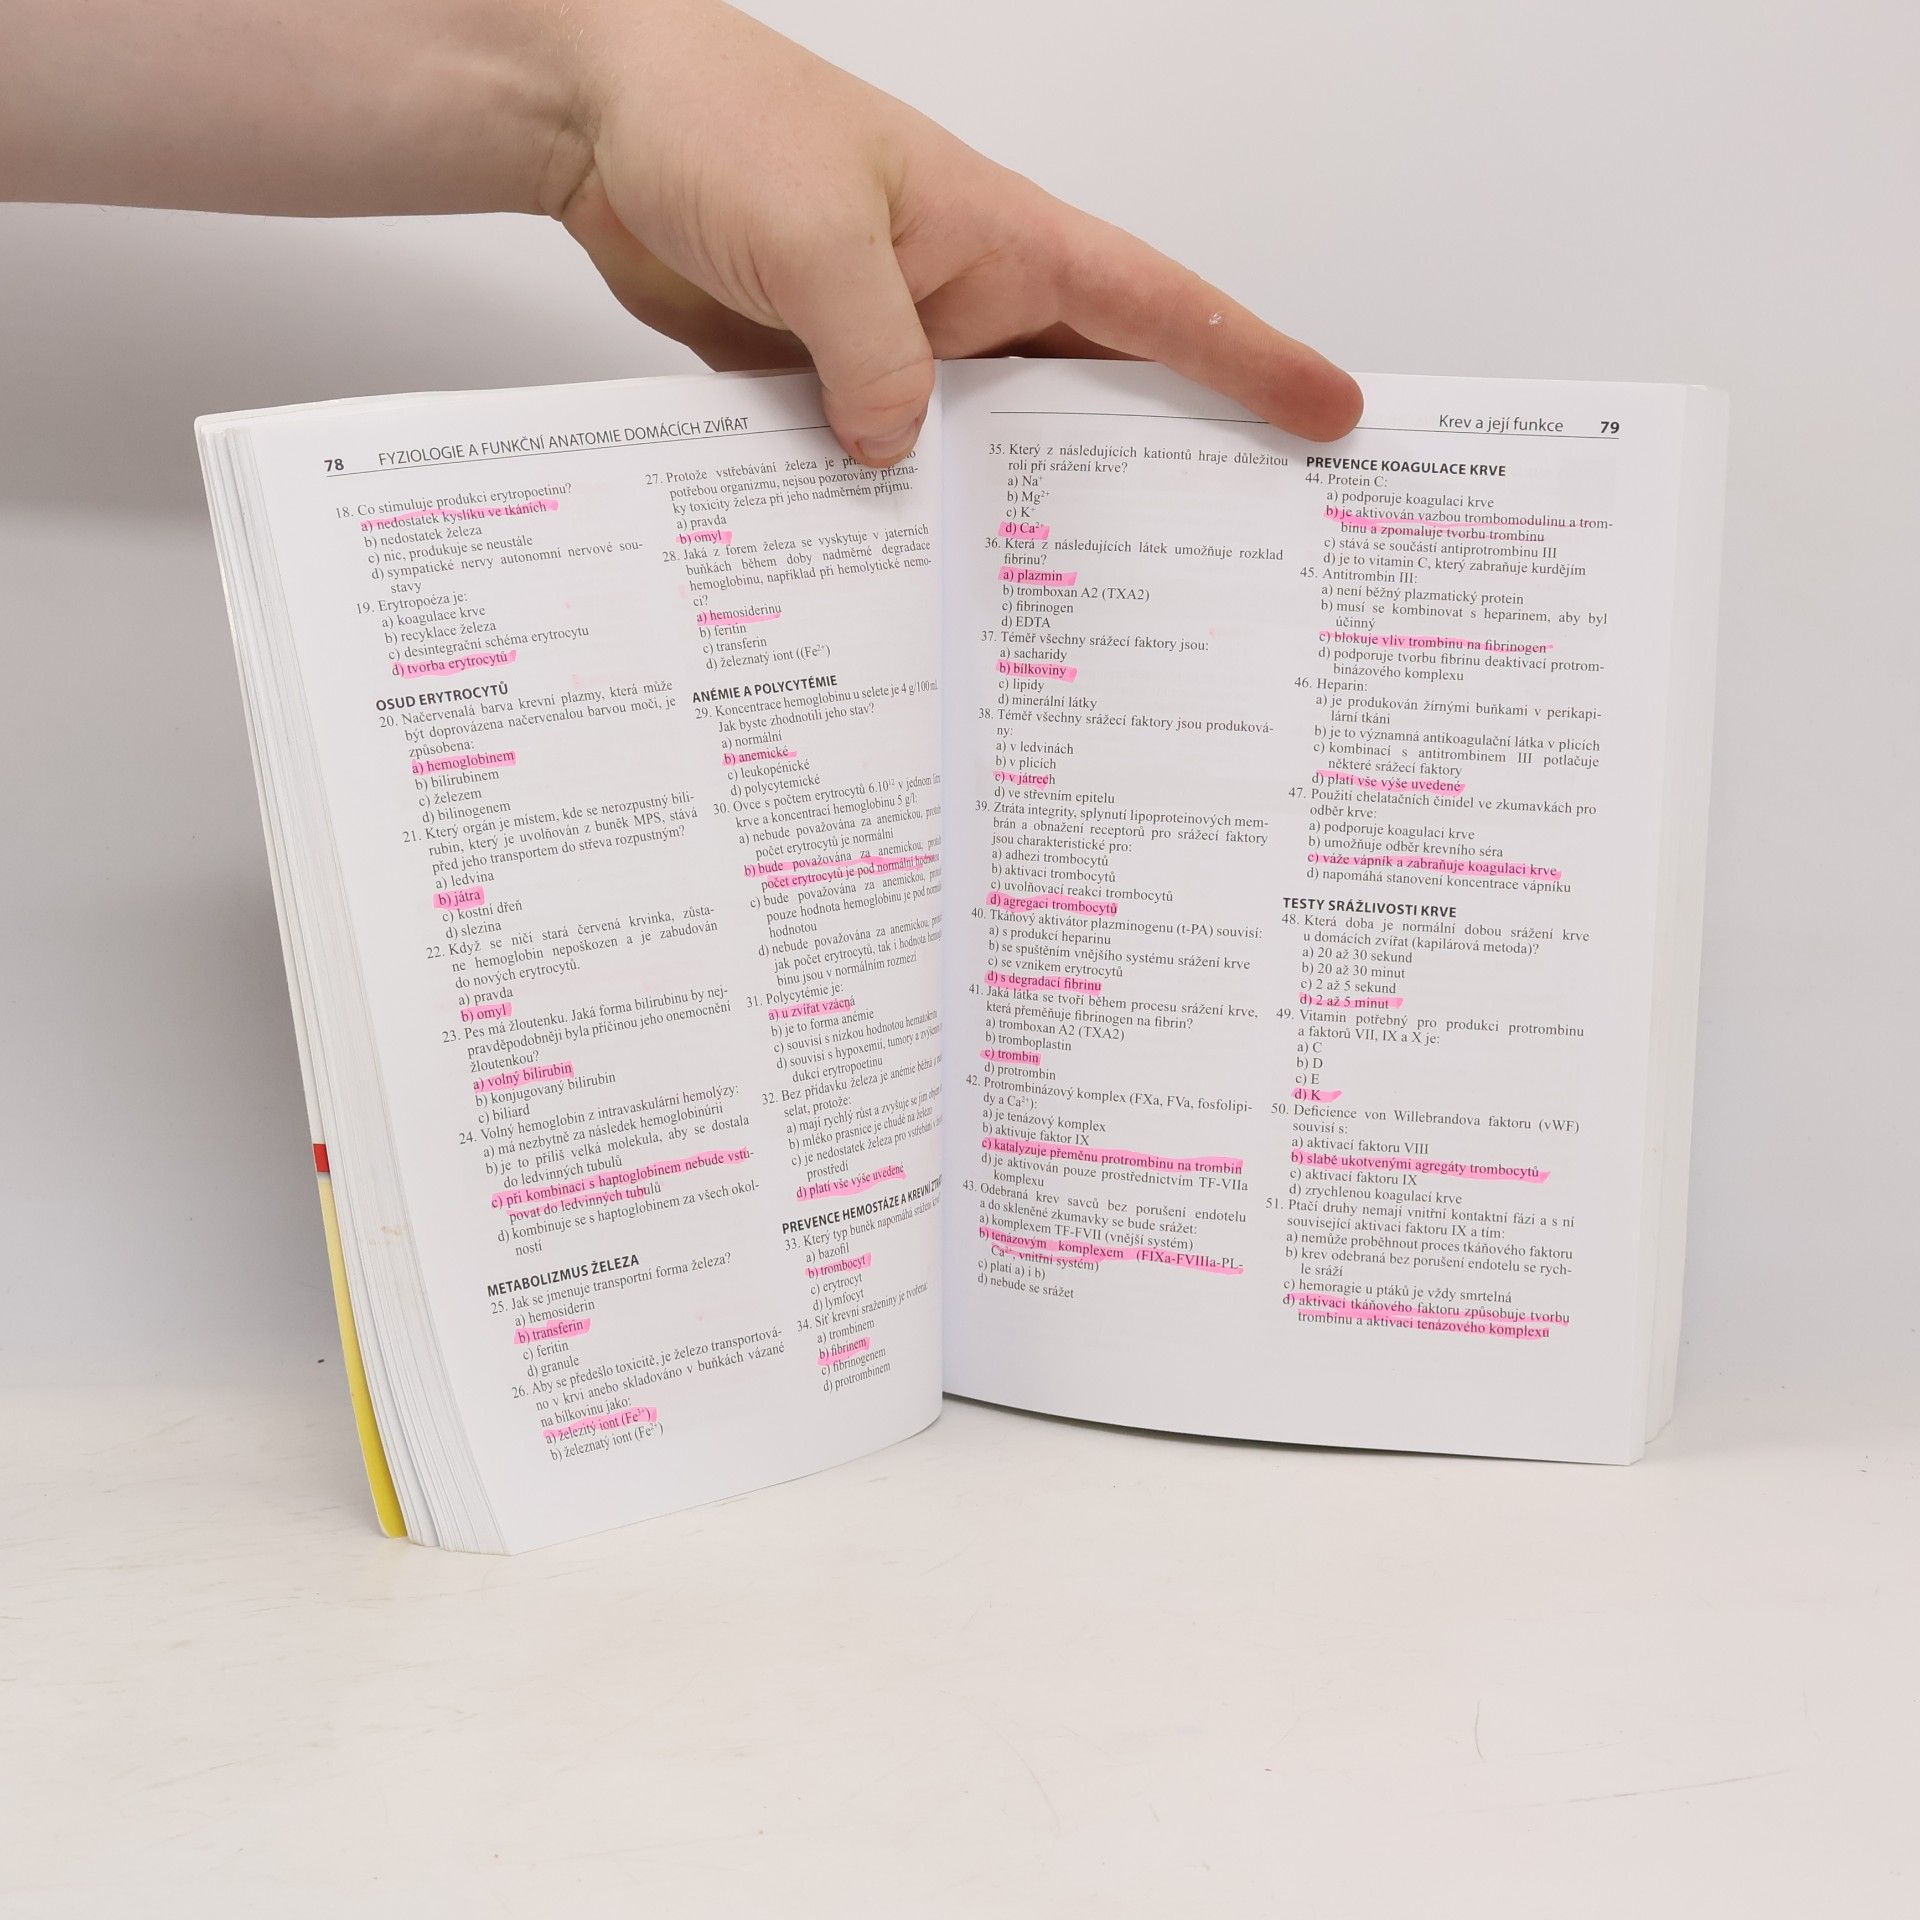 78 FYZIOLOGIE A FUNKČNÍ ANATOMIE DOMÁCÍCH ZVÍŘAT
18. Co stimuluje produkci erytropoetinu?
a) nedostatek kyslíku ve tkáních
b) nedostatek železa
c) nic, produkuje se neustále
d) sympatické nervy autonomní nervové sou-
stavy
19. Erytropoéza je:
a) koagulace krve
b) recyklace železa
c) desintegrační schéma erytrocytu
d) tvorba erytrocytů
OSUD ERYTROCYTŮ
20. Načervenalá barva krevní plazmy, která může
být doprovázena načervenalou barvou moči, je
způsobena:
a) hemoglobinem
b) bilirubinem
c) železem
d) bilinogenem
21. Který orgán je místem, kde se nerozpustný bili-
rubin, který je uvolňován z buněk MPS, stává
před jeho transportem do střeva rozpustným?
a) ledvina
b) játra
c) kostní dřeň
d) slezina
22. Když se ničí stará červená krvinka, zůsta-
ne hemoglobin nepoškozen a je zabudován
do nových erytrocytů.
a) pravda
b) omyl
23. Pes má žloutenku. Jaká forma bilirubinu by nej-
pravděpodobněji byla příčinou jeho onemocnění
žloutenkou?
a) volný bilirubin
b) konjugovaný bilirubin
c) biliard
24. Volný hemoglobin z intravaskulární hemolýzy:
a) má nezbytně za následek hemoglobinúrii
b) je to příliš velká molekula, aby se dostala
do ledvinných tubulů
c) při kombinaci s haptoglobinem nebude vstu-
povat do ledvinných tubulů
d) kombinuje se s haptoglobinem za všech okol-
ností
METABOLIZMUS ŽELEZA
25. Jak se jmenuje transportní forma železa?
a) hemosiderin
b) transferin
c) feritin
d) granule
26. Aby se předešlo toxicitě, je železo transportová-
no v krvi anebo skladováno v buňkách vázané
na bílkovinu jako:
a) železitý iont (Fe³⁺)
b) železnatý iont (Fe²⁺)
27. Protože vstřebávání železa je
potřebou organizmu, nejsou pozorovány přízna-
ky toxicity železa při jeho nadměrném příjmu.
a) pravda
b) omyl
28. Jaká z forem železa se vyskytuje v jaterních
buňkách během doby nadměrné degradace
hemoglobinu, například při hemolytické nemo-
ci?
a) hemosiderinu
b) feritin
c) transferin
d) železnatý iont ((Fe²⁺)
ANÉMIE A POLYCYTÉMIE
29. Koncentrace hemoglobinu u selete je 4 g/100 ml.
Jak byste zhodnotili jeho stav?
a) normální
b) anemické
c) leukopénické
d) polycytemické
30. Ovce s počtem erytrocytů 6.10¹² v jednom
krve a koncentrací hemoglobinu 5 g/l:
a) nebude považována za anemickou,
počet erytrocytů je normální
b) bude považována za anemickou,
počet erytrocytů je pod normální
c) bude považována za anemickou,
pouze hodnota hemoglobinu je pod
hodnotou
d) nebude považována za anemickou,
jak počet erytrocytů, tak i hodnota
binu jsou v normálním rozmezí
31. Polycytémie je:
a) u zvířat vzácná
b) je to forma anémie
c) souvisí s nízkou hodnotou hematokritu
d) souvisí s hypoxemií, tumory a
dukcí erytropoetinu
32. Bez přídavku železa je anémie běžná u
selat, protože:
a) mají rychlý růst a zvyšuje se jim objem
b) mléko prasnice je chudé na železo
c) je nedostatek železa pro vstřebání v
prostředí
d) platí vše výše uvedené
PREVENCE HEMOSTÁZE A KREVNÍ
33. Který typ buněk napomáhá srážení
a) bazofil
b) trombocyt
c) erytrocyt
d) lymfocyt
34. Síť krevní sraženiny je tvořena:
a) trombinem
b) fibrinem
c) fibrinogenem
d) protrombinem
Krev a její funkce 79
35. Který z následujících kationtů hraje důležitou
roli při srážení krve?
a) Na⁺
b) Mg²⁺
c) K⁺
d) Ca²⁺
36. Která z následujících látek umožňuje rozklad
fibrinu?
a) plazmin
b) tromboxan A2 (TXA2)
c) fibrinogen
d) EDTA
37. Téměř všechny srážecí faktory jsou:
a) sacharidy
b) bílkoviny
c) lipidy
d) minerální látky
38. Téměř všechny srážecí faktory jsou produková-
ny:
a) v ledvinách
b) v plicích
c) v játrech
d) ve střevním epitelu
39. Ztráta integrity, splynutí lipoproteinových mem-
brán a obnažení receptorů pro srážecí faktory
jsou charakteristické pro:
a) adhezi trombocytů
b) aktivaci trombocytů
c) uvolňovací reakci trombocytů
d) agregaci trombocytů
40. Tkáňový aktivátor plazminogenu (t-PA) souvisí:
a) s produkcí heparinu
b) se spuštěním vnějšího systému srážení krve
c) se vznikem erytrocytů
d) s degradací fibrinu
41. Jaká látka se tvoří během procesu srážení krve,
která přeměňuje fibrinogen na fibrin?
a) tromboxan A2 (TXA2)
b) tromboplastin
c) trombin
d) protrombin
42. Protrombinázový komplex (FXa, FVa, fosfolipi-
dy a Ca²⁺):
a) je tenázový komplex
b) aktivuje faktor IX
c) katalyzuje přeměnu protrombinu na trombin
d) je aktivován pouze prostřednictvím TF-VIIa
komplexu
43. Odebraná krev savců bez porušení endotelu
a do skleněné zkumavky se bude srážet:
a) komplexem TF-FVII (vnější systém)
b) tenázovým komplexem (FIXa-FVIIIa-PL-
Ca²⁺, vnitřní systém)
c) platí a) i b)
d) nebude se srážet
PREVENCE KOAGULACE KRVE
44. Protein C:
a) podporuje koagulaci krve
b) je aktivován vazbou trombomodulinu a trom-
binu a zpomaluje tvorbu trombinu
c) stává se součástí antiprotrombinu III
d) je to vitamin C, který zabraňuje kurdějím
45. Antitrombin III:
a) není běžný plazmatický protein
b) musí se kombinovat s heparinem, aby byl
účinný
c) blokuje vliv trombinu na fibrinogen
d) podporuje tvorbu fibrinu deaktivací protrom-
binázového komplexu
46. Heparin:
a) je produkován žírnými buňkami v perikapi-
lární tkáni
b) je to významná antikoagulační látka v plicích
c) kombinací s antitrombinem III potlačuje
některé srážecí faktory
d) platí vše výše uvedené
47. Použití chelatačních činidel ve zkumavkách pro
odběr krve:
a) podporuje koagulaci krve
b) umožňuje odběr krevního séra
c) váže vápník a zabraňuje koagulaci krve
d) napomáhá stanovení koncentrace vápníku
TESTY SRÁŽLIVOSTI KRVE
48. Která doba je normální dobou srážení krve
u domácích zvířat (kapilárová metoda)?
a) 20 až 30 sekund
b) 20 až 30 minut
c) 2 až 5 sekund
d) 2 až 5 minut
49. Vitamin potřebný pro produkci protrombinu
a faktorů VII, IX a X je:
a) C
b) D
c) E
d) K
50. Deficience von Willebrandova faktoru (vWF)
souvisí s:
a) aktivací faktoru VIII
b) slabě ukotvenými agregáty trombocytů
c) aktivací faktoru IX
d) zrychlenou koagulací krve
51. Ptačí druhy nemají vnitřní kontaktní fázi a s ní
související aktivaci faktoru IX a tím:
a) nemůže proběhnout proces tkáňového faktoru
b) krev odebraná bez porušení endotelu se rych-
le sráží
c) hemoragie u ptáků je vždy smrtelná
d) aktivací tkáňového faktoru způsobuje tvorbu
trombinu a aktivaci tenázového komplexu